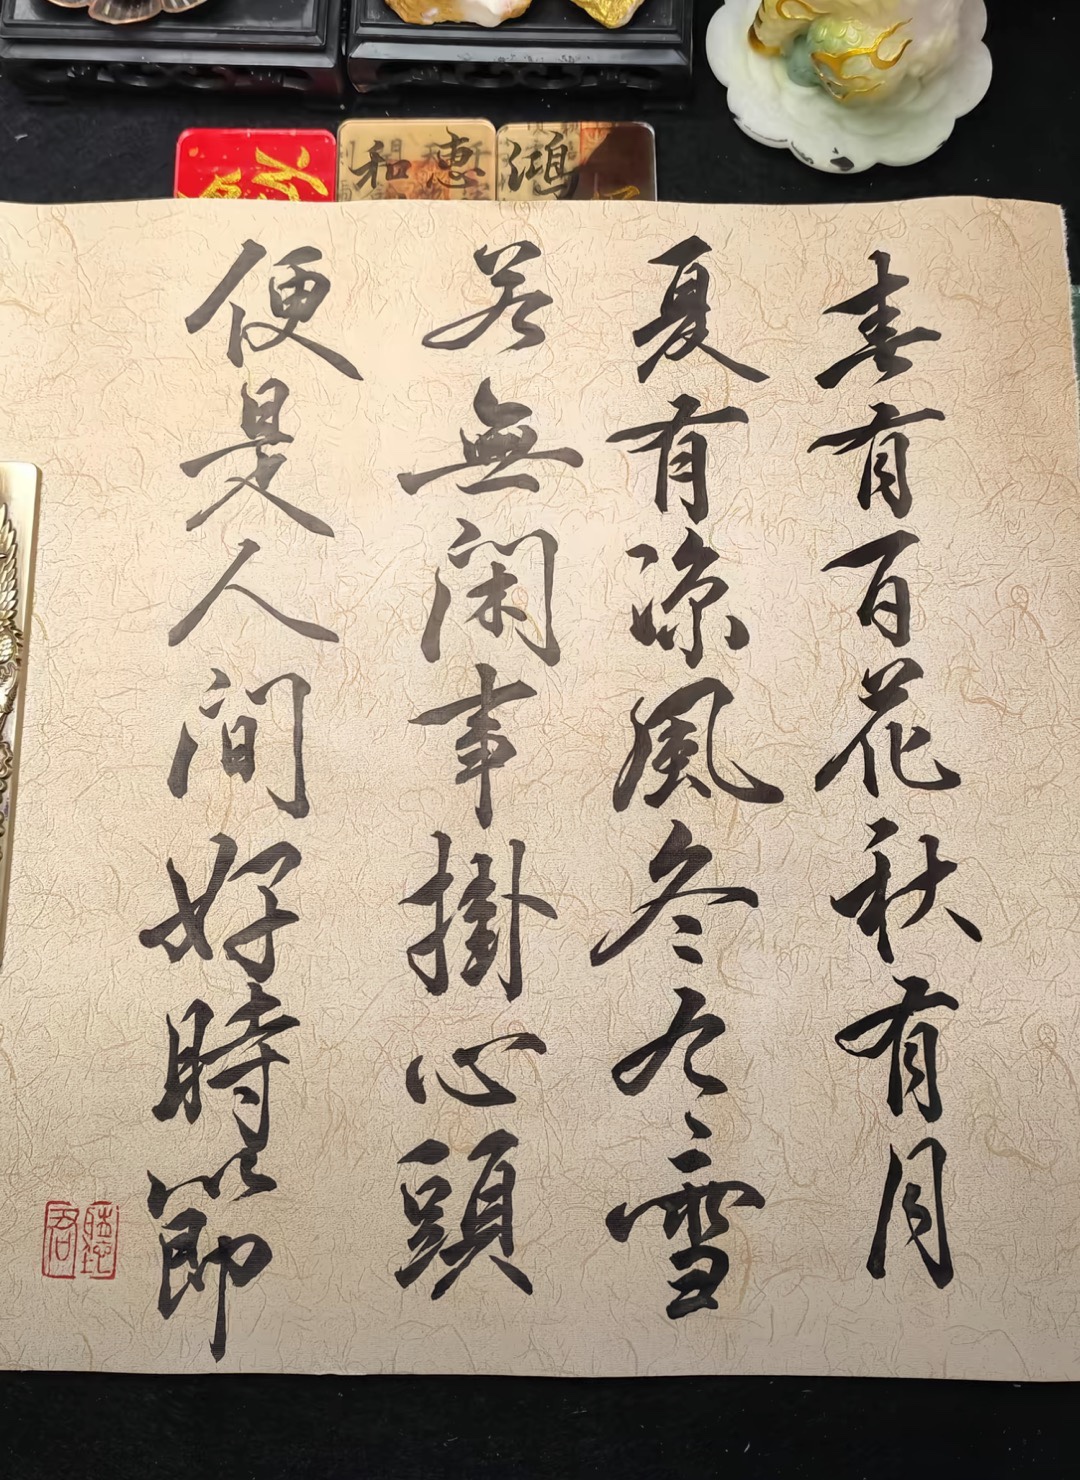 和惠
鴻
春有百花秋有月
夏有涼風冬有雪
若無閑事掛心頭
便是人間好時節